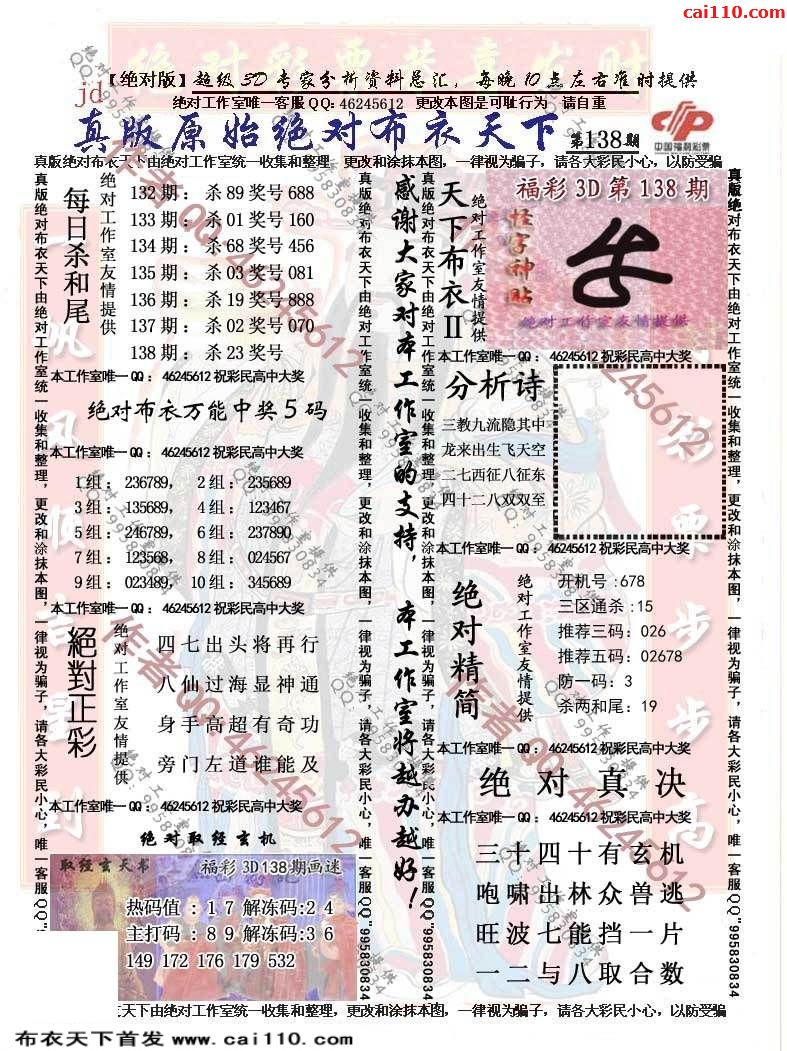 cai110.com
【绝对版】超级3D专家分析资料总汇，每晚10点左右准时提供
jd
绝对工作室唯一客服QQ:46245612 更改本图是可耻行为 请自重
真版原始绝对布衣天下 第138期
中国福利彩票
真版绝对布衣天下由绝对工作室统一收集和整理，更改和涂抹本图，一律视为骗子，请各大彩民小心，以防受骗
每日杀和尾
绝对工作室友情提供
132期：杀89奖号688
133期：杀01奖号160
134期：杀68奖号456
135期：杀03奖号081
136期：杀19奖号888
137期：杀02奖号070
138期：杀23奖号
本工作室唯一QQ：46245612祝彩民高中大奖
绝对布衣万能中奖5码
本工作室唯一QQ：46245612祝彩民高中大奖
1组：236789， 2组：235689
3组：135689， 4组：123467
5组：246789， 6组：237890
7组：123568， 8组：024567
9组：023489， 10组：345689
本工作室唯一QQ：46245612祝彩民高中大奖
絕對正彩
绝对工作室友情提供
四七出头将再行
八仙过海显神通
身手高超有奇功
旁门左道谁能及
本工作室唯一QQ：46245612祝彩民高中大奖
绝对取经玄机
取经玄天书 福彩3D138期画迷
热码值：17解冻码:24
主打码：89解冻码:36
149 172 176 179 532
感谢大家对本工作室的支持，本工作室将越办越好！
真版绝对布衣天下由绝对工作室统一收集和整理，更改和涂抹本图，一律视为骗子，请各大彩民小心，唯一客服QQ"995830834
天下布衣II
绝对工作室友情提供
福彩3D第138期
怪字神贴
绝对工作室友情提供
本工作室唯一QQ：46245612祝彩民高中大奖
分析诗
三教九流隐其中
龙来出生飞天空
二七西征八征东
四十二八双双至
本工作室唯一QQ：46245612祝彩民高中大奖
绝对精简
绝对工作室友情提供
开机号:678
三区通杀:15
推荐三码：026
推荐五码：02678
防一码：3
杀两和尾：19
本工作室唯一QQ：46245612祝彩民高中大奖
绝对真决
本工作室唯一QQ：46245612祝彩民高中大奖
三十四十有玄机
咆啸出林众兽逃
旺波七能挡一片
一二与八取合数
天下由绝对工作室统一收集和整理，更改和涂抹本图，一律视为骗子，请各大彩民小心，以防受骗
布衣天下首发 www.cai110.com